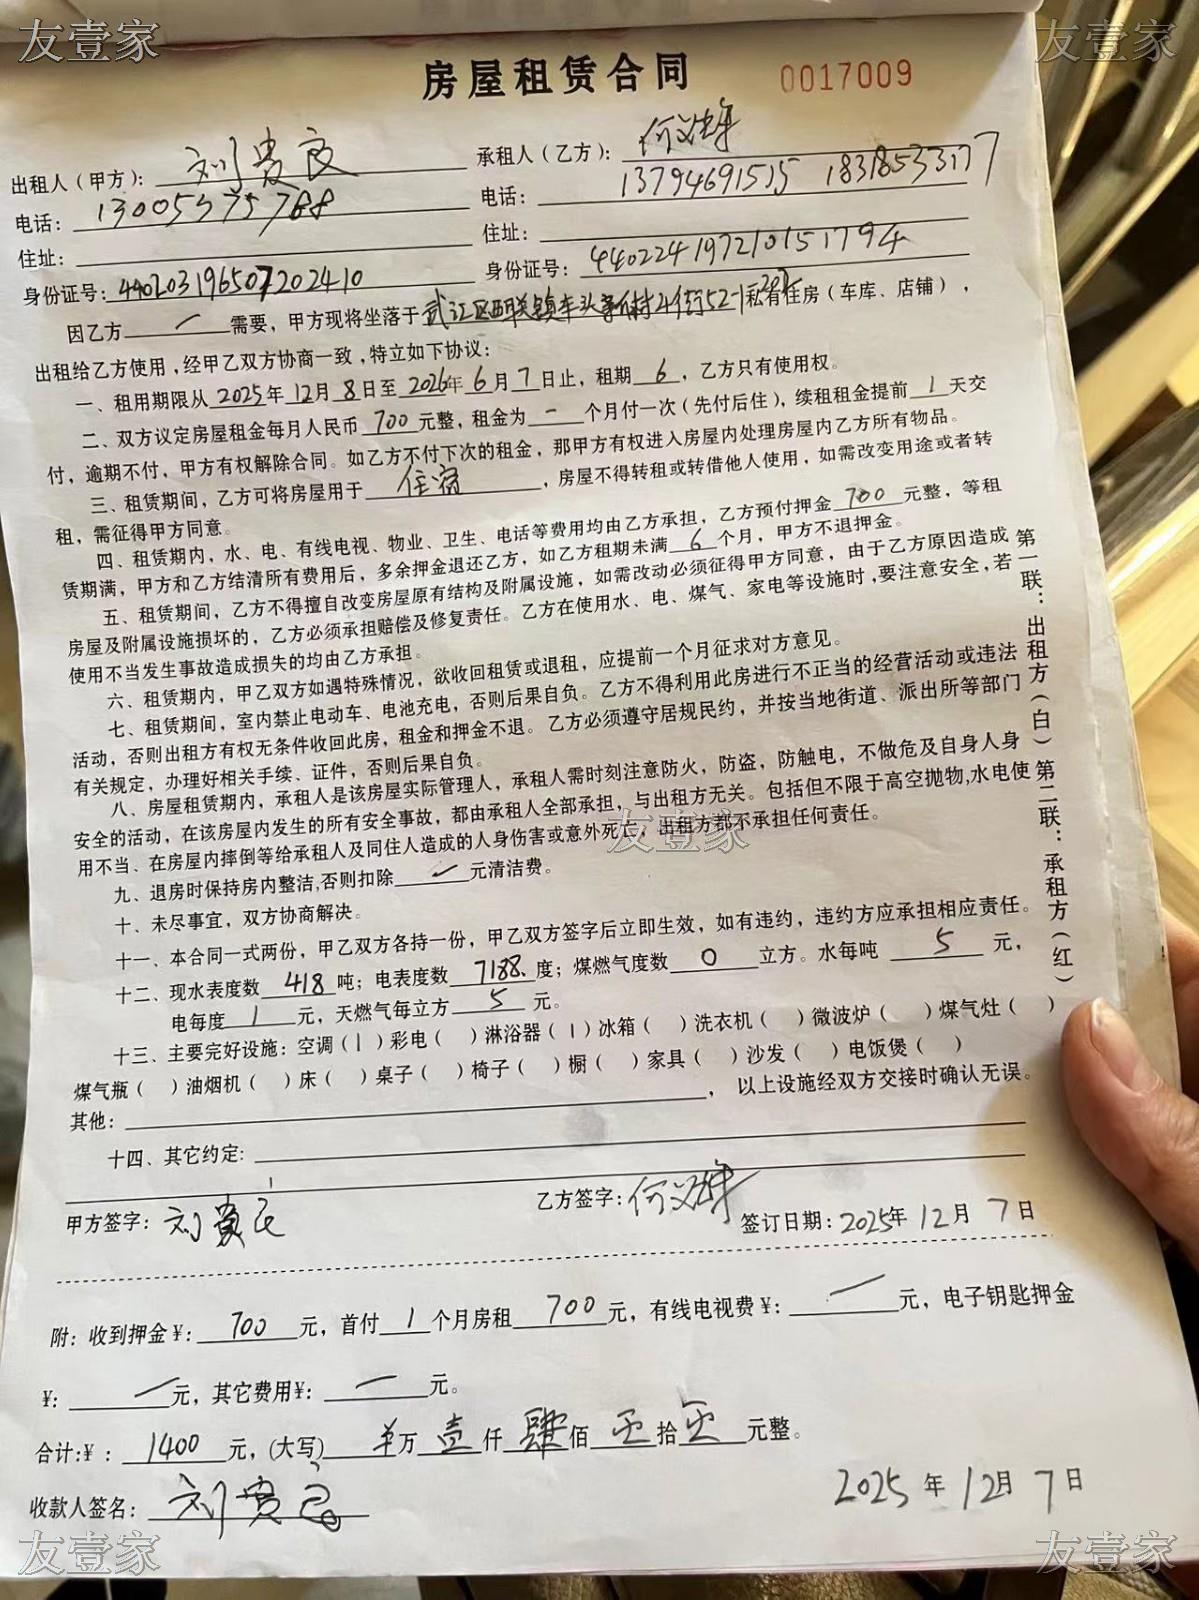 友壹家
友壹家
房屋租赁合同 0017009
出租人（甲方）：刘贵良 承租人（乙方）：
电话：13005375788 电话：13794691515 18318533177
住址： 住址：
身份证号：440203196507202410 身份证号：440224197210151794
因乙方 / 需要，甲方现将坐落于武江区西联镇车头新村4街52-1 202私有住房（车库、店铺），
出租给乙方使用，经甲乙双方协商一致，特立如下协议：
一、租用期限从2025年12月8日至2026年6月7日止，租期6，乙方只有使用权。
二、双方议定房屋租金每月人民币700元整，租金为一个月付一次（先付后住），续租租金提前1天交
付，逾期不付，甲方有权解除合同。如乙方不付下次的租金，那甲方有权进入房屋内处理房屋内乙方所有物品。
三、租赁期间，乙方可将房屋用于住宿，房屋不得转租或转借他人使用，如需改变用途或者转
租，需征得甲方同意。
四、租赁期内，水、电、有线电视、物业、卫生、电话等费用均由乙方承担，乙方预付押金700元整，等租
赁期满，甲方和乙方结清所有费用后，多余押金退还乙方，如乙方租期未满6个月，甲方不退押金。
五、租赁期间，乙方不得擅自改变房屋原有结构及附属设施，如需改动必须征得甲方同意，由于乙方原因造成
房屋及附属设施损坏的，乙方必须承担赔偿及修复责任。乙方在使用水、电、煤气、家电等设施时，要注意安全，若
使用不当发生事故造成损失的均由乙方承担。
六、租赁期内，甲乙双方如遇特殊情况，欲收回租赁或退租，应提前一个月征求对方意见。
七、租赁期间，室内禁止电动车、电池充电，否则后果自负。乙方不得利用此房进行不正当的经营活动或违法
活动，否则出租方有权无条件收回此房，租金和押金不退。乙方必须遵守居规民约，并按当地街道、派出所等部门
有关规定，办理好相关手续、证件，否则后果自负。
八、房屋租赁期内，承租人是该房屋实际管理人，承租人需时刻注意防火，防盗，防触电，不做危及自身人身
安全的活动，在该房屋内发生的所有安全事故，都由承租人全部承担，与出租方无关。包括但不限于高空抛物，水电使
用不当、在房屋内摔倒等给承租人及同住人造成的人身伤害或意外死亡，出租方都不承担任何责任。
友壹家
九、退房时保持房内整洁，否则扣除 / 元清洁费。
十、未尽事宜，双方协商解决。
十一、本合同一式两份，甲乙双方各持一份，甲乙双方签字后立即生效，如有违约，违约方应承担相应责任。
十二、现水表度数418吨；电表度数7188.度；煤燃气度数0立方。水每吨5元，
电每度1元，天燃气每立方5元。
十三、主要完好设施：空调（1）彩电（ ）淋浴器（1）冰箱（ ）洗衣机（ ）微波炉（ ）煤气灶（ ）
煤气瓶（ ）油烟机（ ）床（ ）桌子（ ）椅子（ ）橱（ ）家具（ ）沙发（ ）电饭煲（ ）
其他： ，以上设施经双方交接时确认无误。
十四、其它约定：
第一联：出租方（白）第二联：承租方（红）
甲方签字：刘贵良 乙方签字： 签订日期：2025年12月7日
附：收到押金¥：700元，首付1个月房租700元，有线电视费¥： / 元，电子钥匙押金
¥： / 元，其它费用¥： / 元。
合计：¥：1400元，（大写） 万壹仟肆佰 拾 元整。
收款人签名：刘贵良 2025年12月7日
友壹家
友壹家